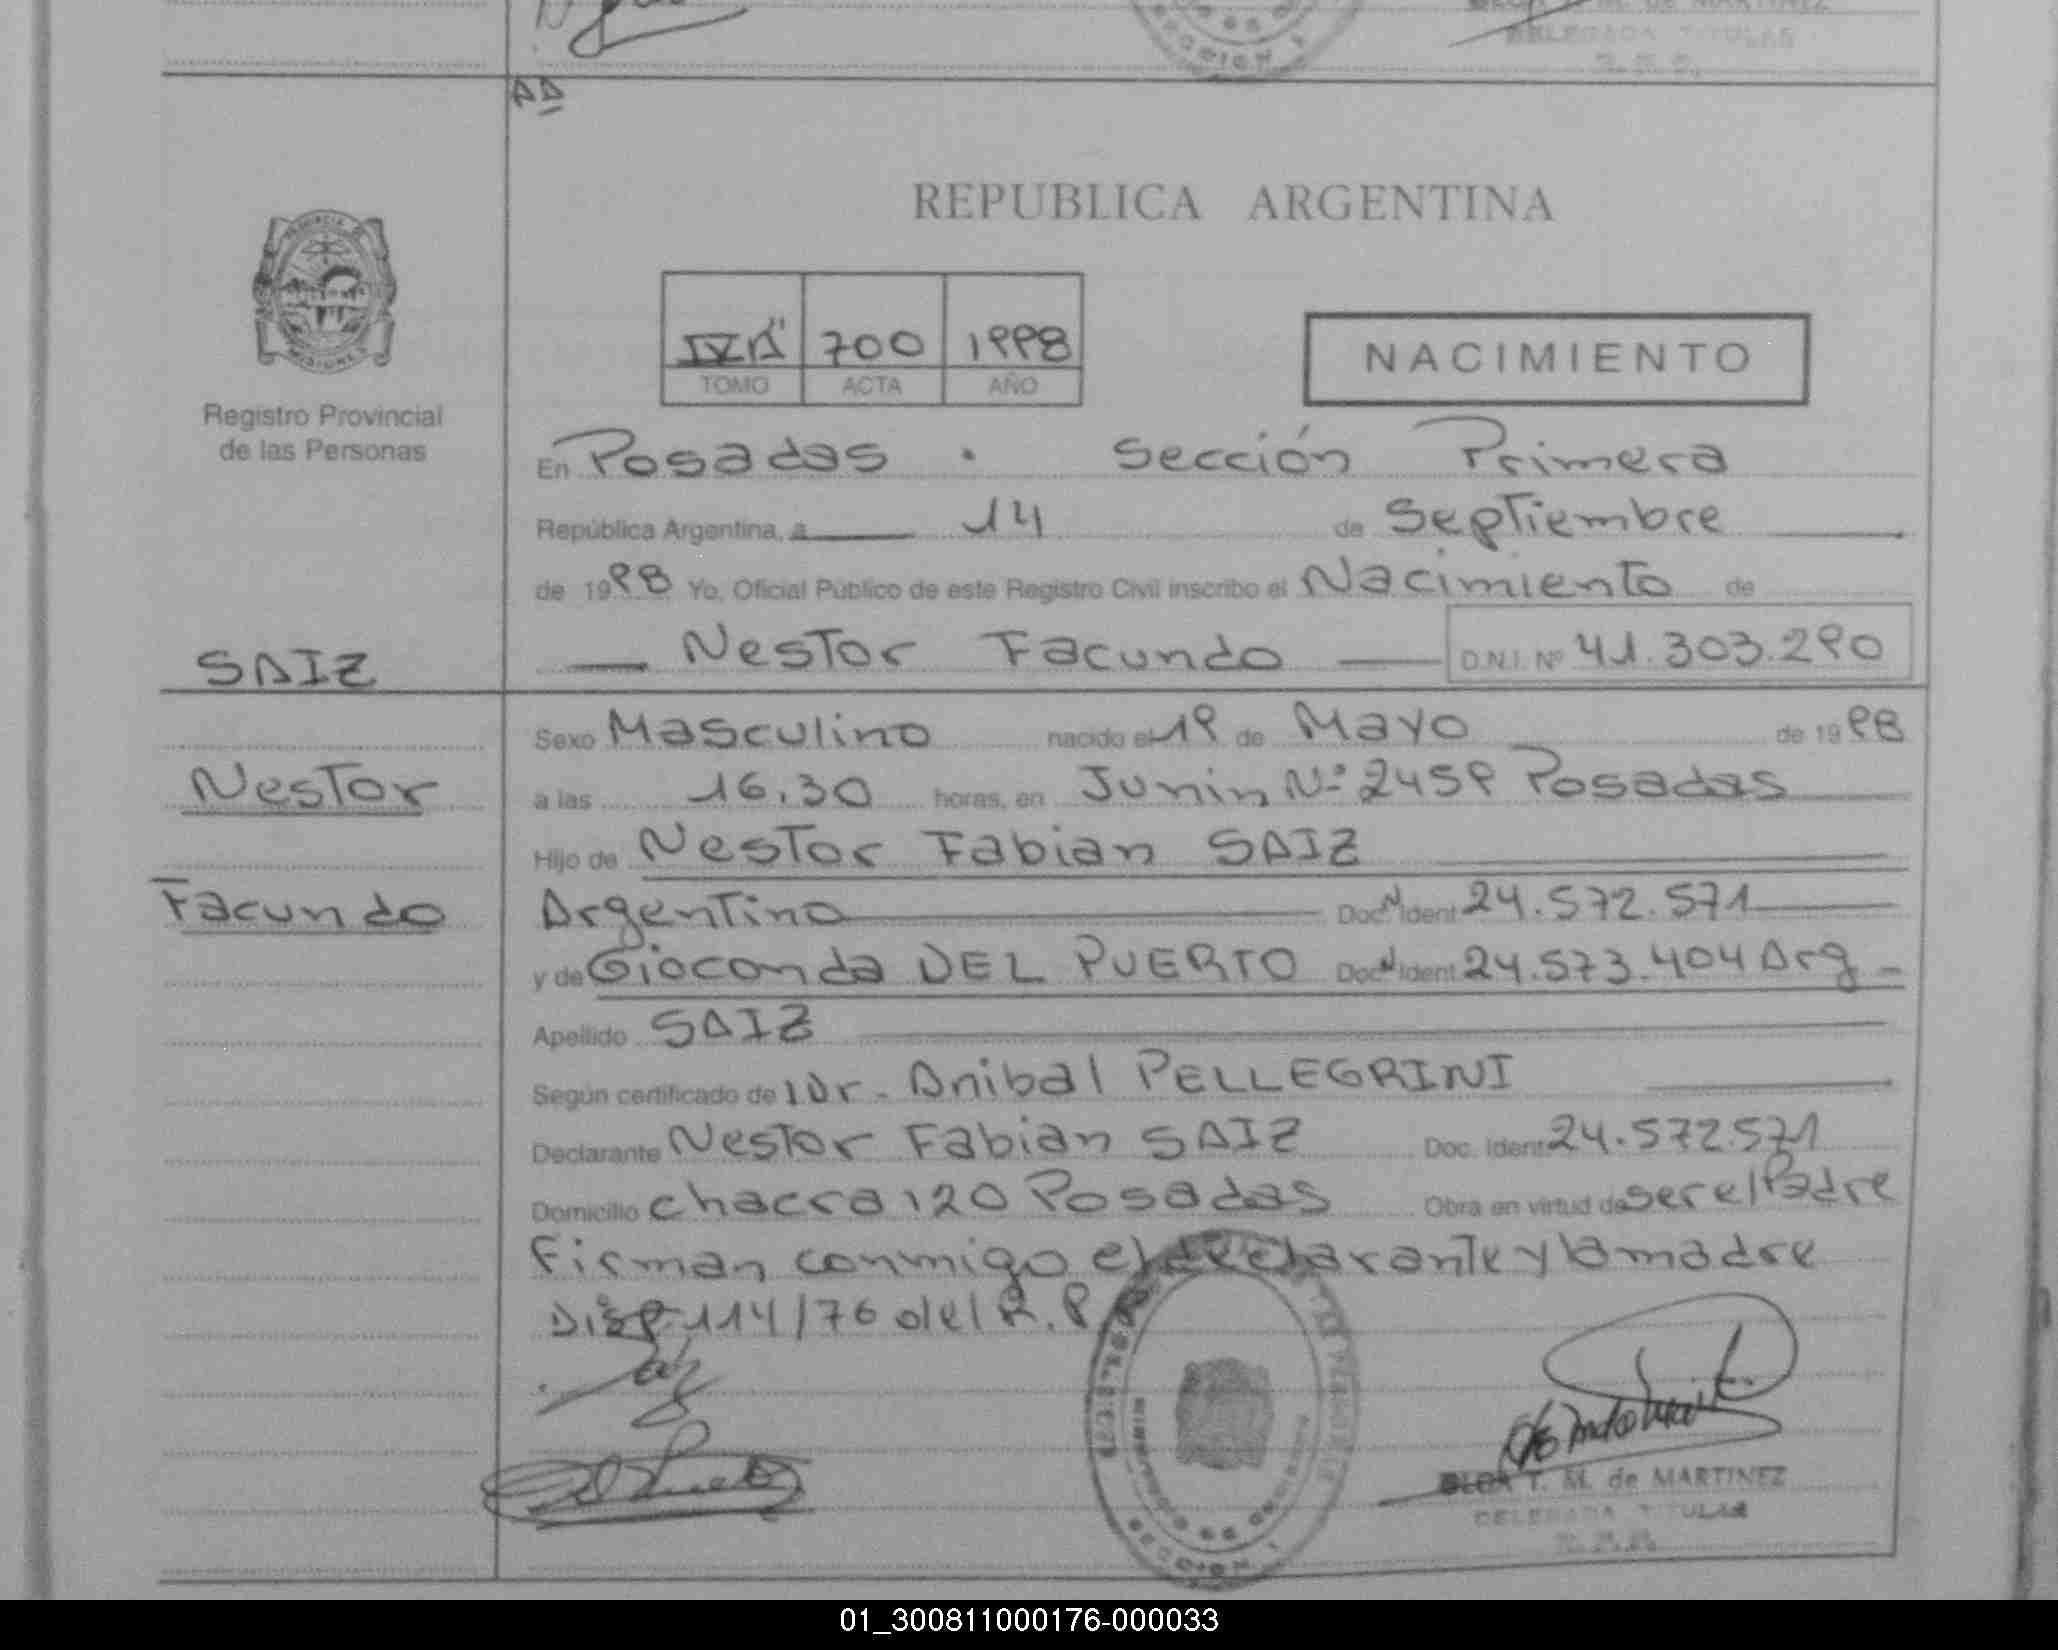 DELEGADA TITULAR
R.P.P.
AA
REPUBLICA ARGENTINA
PROVINCIA DE
MISIONES
Registro Provincial
de las Personas
IV"A" 700 1998
TOMO ACTA AÑO
NACIMIENTO
En Posadas. Sección Primera
República Argentina, a 14 de Septiembre
de 1998 Yo, Oficial Público de este Registro Civil inscribo el Nacimiento de
SAIZ
Nestor Facundo D.N.I. Nº 41.303.290
Sexo Masculino nacido el 19 de Mayo de 1998
Nestor
a las 16,30 horas, en Junin Nº 2459 Posadas
Hijo de Nestor Fabian SAIZ
Facundo
Argentino Doc N Ident 24.572.571
y de Gioconda DEL PUERTO Doc N Ident 24.573.404 Arg -
Apellido SAIZ
Según certificado de l Dr. Anibal PELLEGRINI
Declarante Nestor Fabian SAIZ Doc. Ident 24.572.571
Domicilio chacra 120 Posadas Obra en virtud de ser el Padre
Firman conmigo el declarante y la madre
Disp. 114/76 del R.P.
SECCION 1
T. M. de MARTINEZ
DELEGADA TITULAR
R.P.P.
01_300811000176-000033